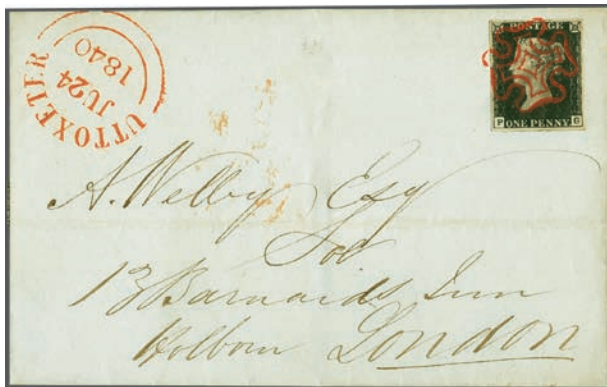 UTTOXETER
JU 24
1840
POSTAGE
P ONE PENNY G
A. Welby Esq
Sol
13 Barnards Inn
Holborn London